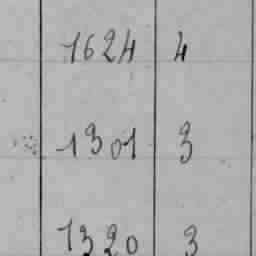 1624 4
1301 3
1320 3